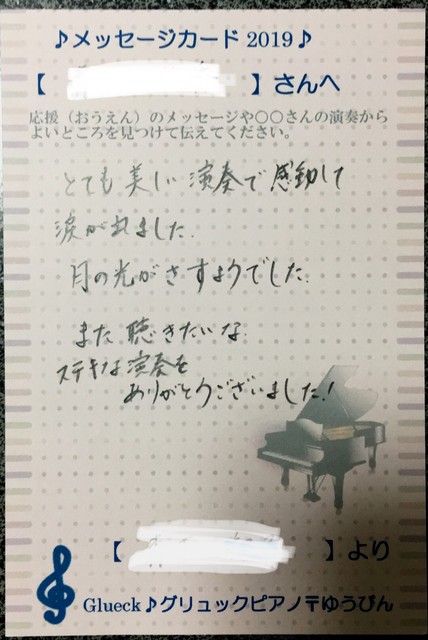 ♪メッセージカード 2019♪
【 】さんへ
応援（おうえん）のメッセージや○○さんの演奏から
よいところを見つけて伝えてください。
とても美しい演奏で感動して
涙が出ました.
月の光がさすようでした.
また聴きたいな.
ステキな演奏を
ありがとうございました!
【 】より
Glueck♪グリュックピアノ〒ゆうびん